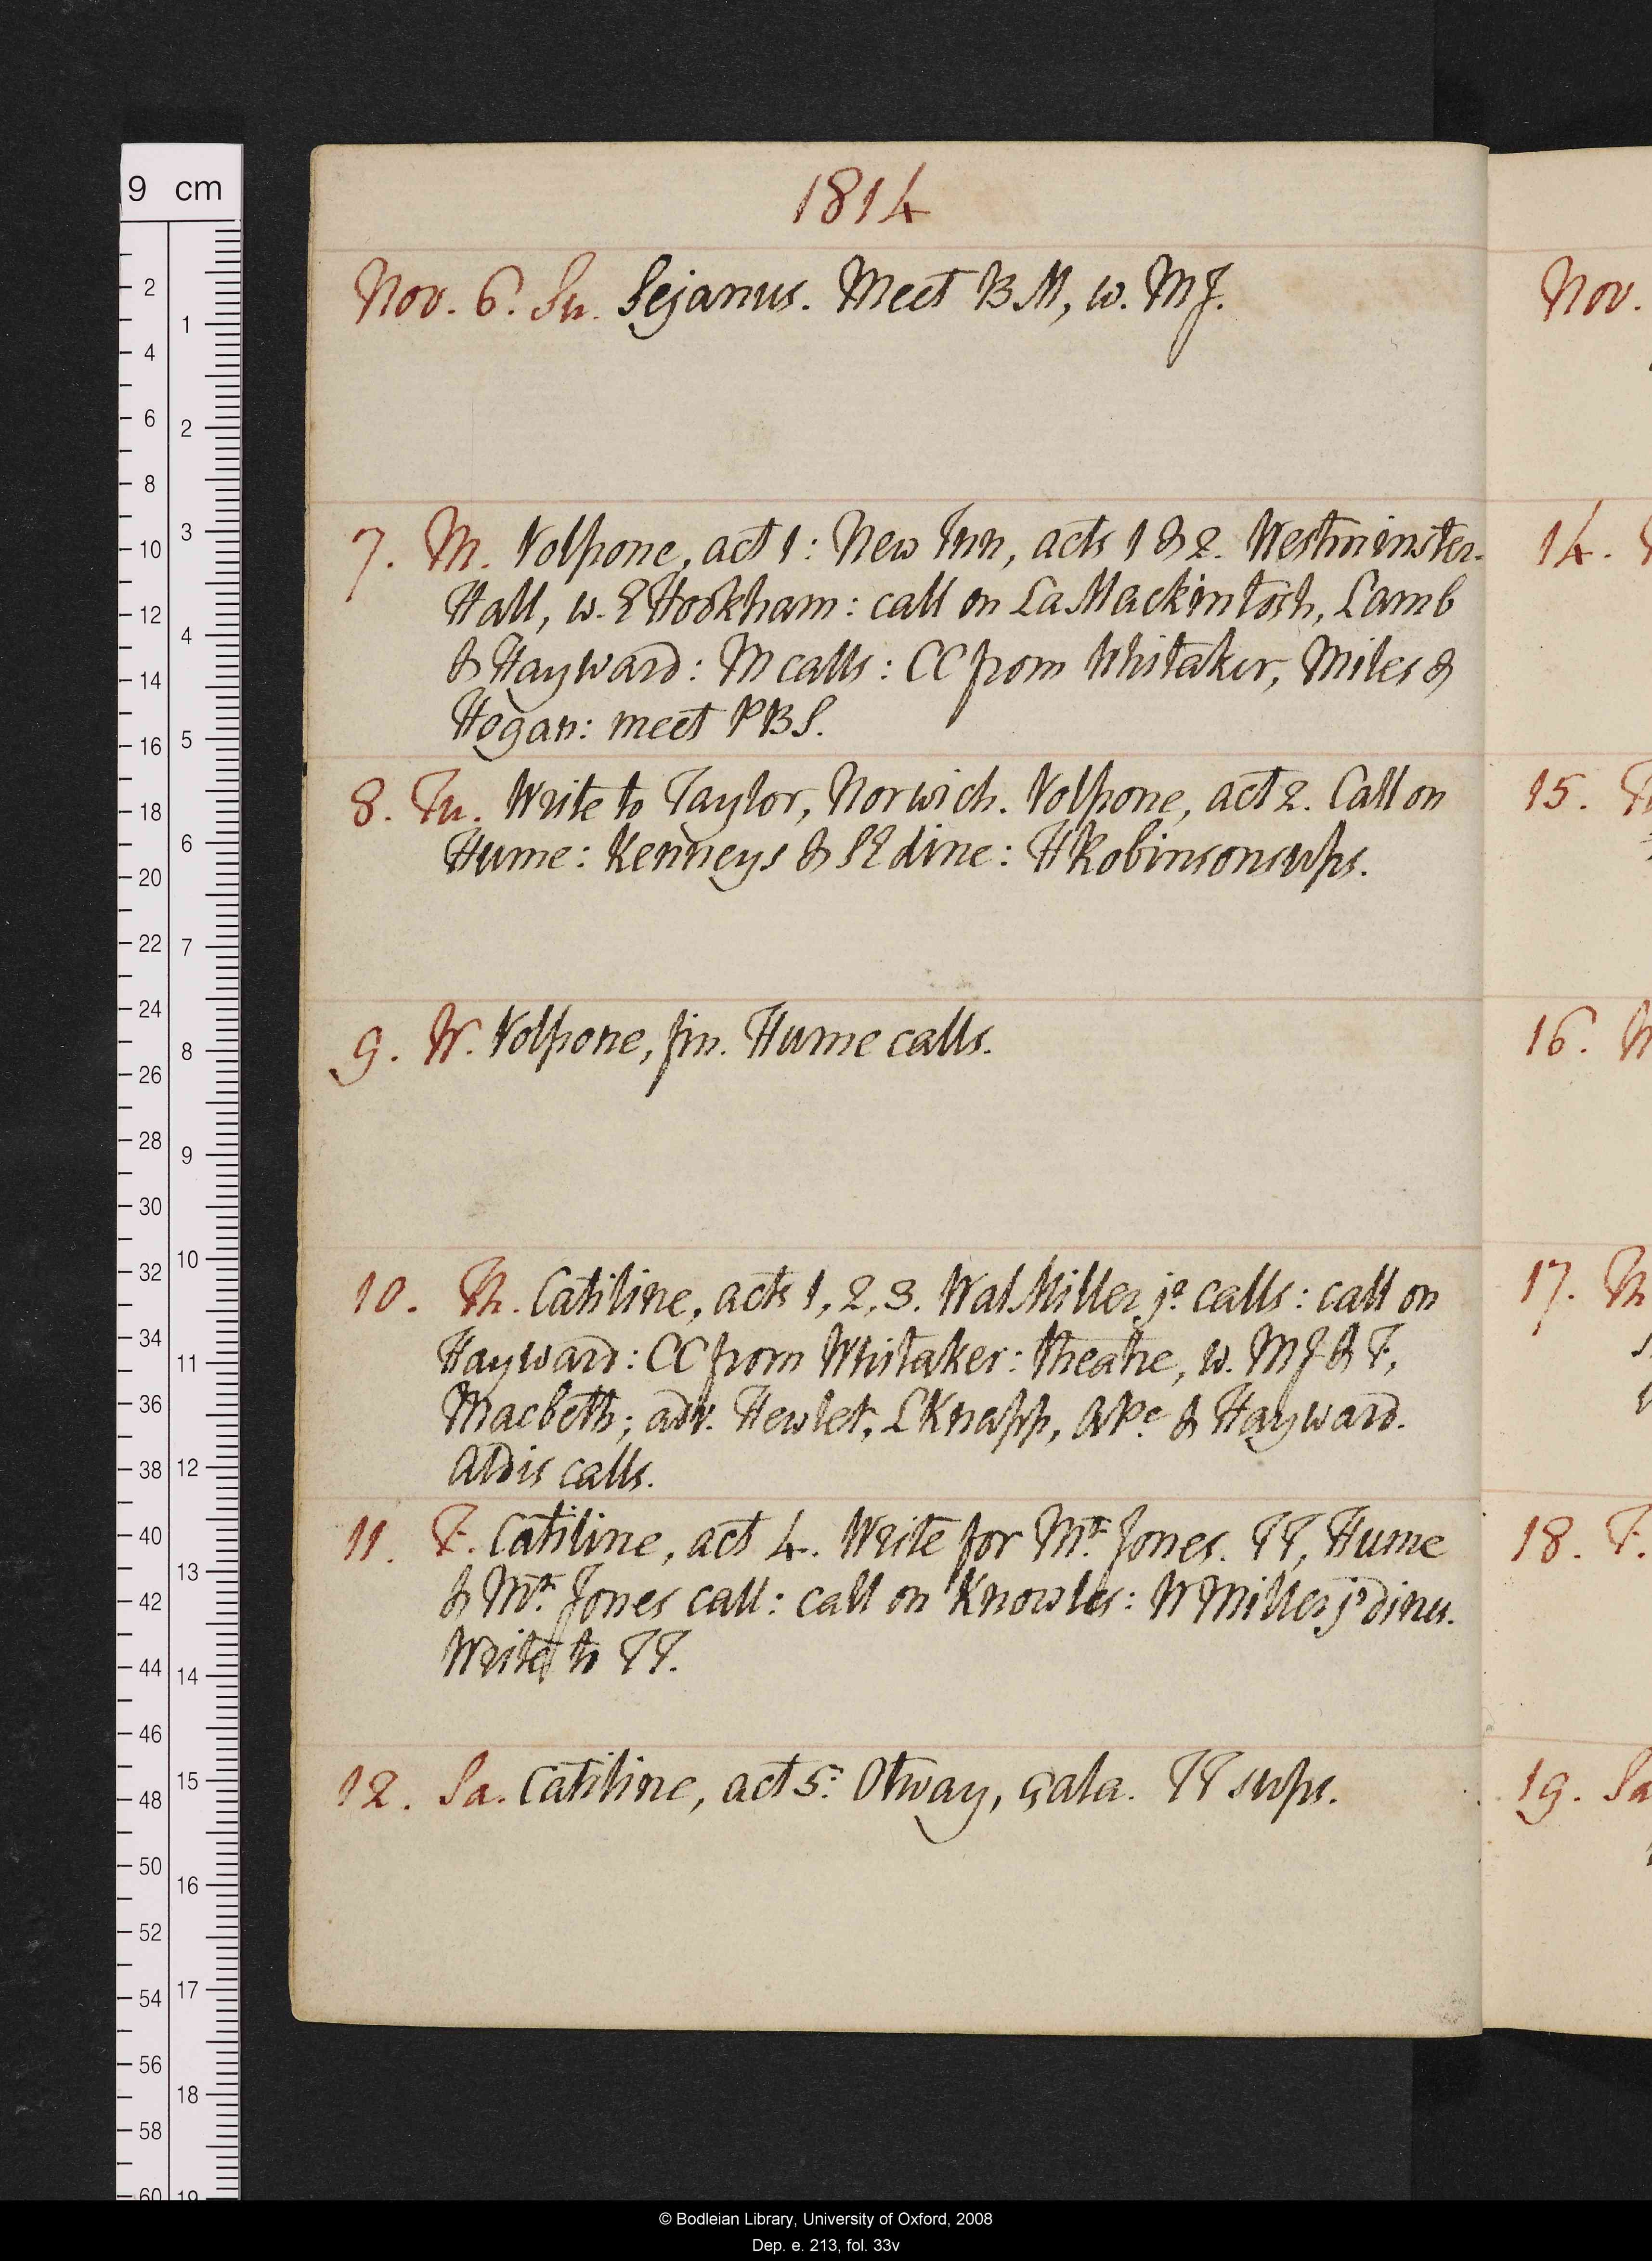 1814
Nov. 6. Su. Sejanus. Meet BM, w. MJ.
7. M. Volpone, act 1: New Inn, acts 1 & 2. Westminster-
Hall, w. E Hookham: call on La Mackintosh, Lamb
& Hayward: M calls: CC from Whitaker, Miles &
Hogan: meet PBS.
8. Tu. Write to Taylor, Norwich. Volpone, act 2. Call on
Hume: Kenneys & SE dine: H Robinson sups.
9. W. Volpone, fin. Hume calls.
10. Th. Catiline, acts 1, 2, 3. Wal Miller jr calls: call on
Hayward: CC from Whitaker: theatre, w. MJ & T,
Macbeth; adv. Hewlet, L Knapp, APe & Hayward.
Aldis calls.
11. F. Catiline, act 4. Write for Mr Jones. TT, Hume
& Mr Jones call: call on Knowles: W Miller jr dines.
Write to TT.
12. Sa. Catiline, act 5: Otway, çala. TT sups.
Nov.
14.
15.
16.
17.
18. F.
19. Sa
9 cm
2 4 6 8 10 12 14 16 18 20 22 24 26 28 30 32 34 36 38 40 42 44 46 48 50 52 54 56 58 60
1 2 3 4 5 6 7 8 9 10 11 12 13 14 15 16 17 18 19
© Bodleian Library, University of Oxford, 2008
Dep. e. 213, fol. 33v